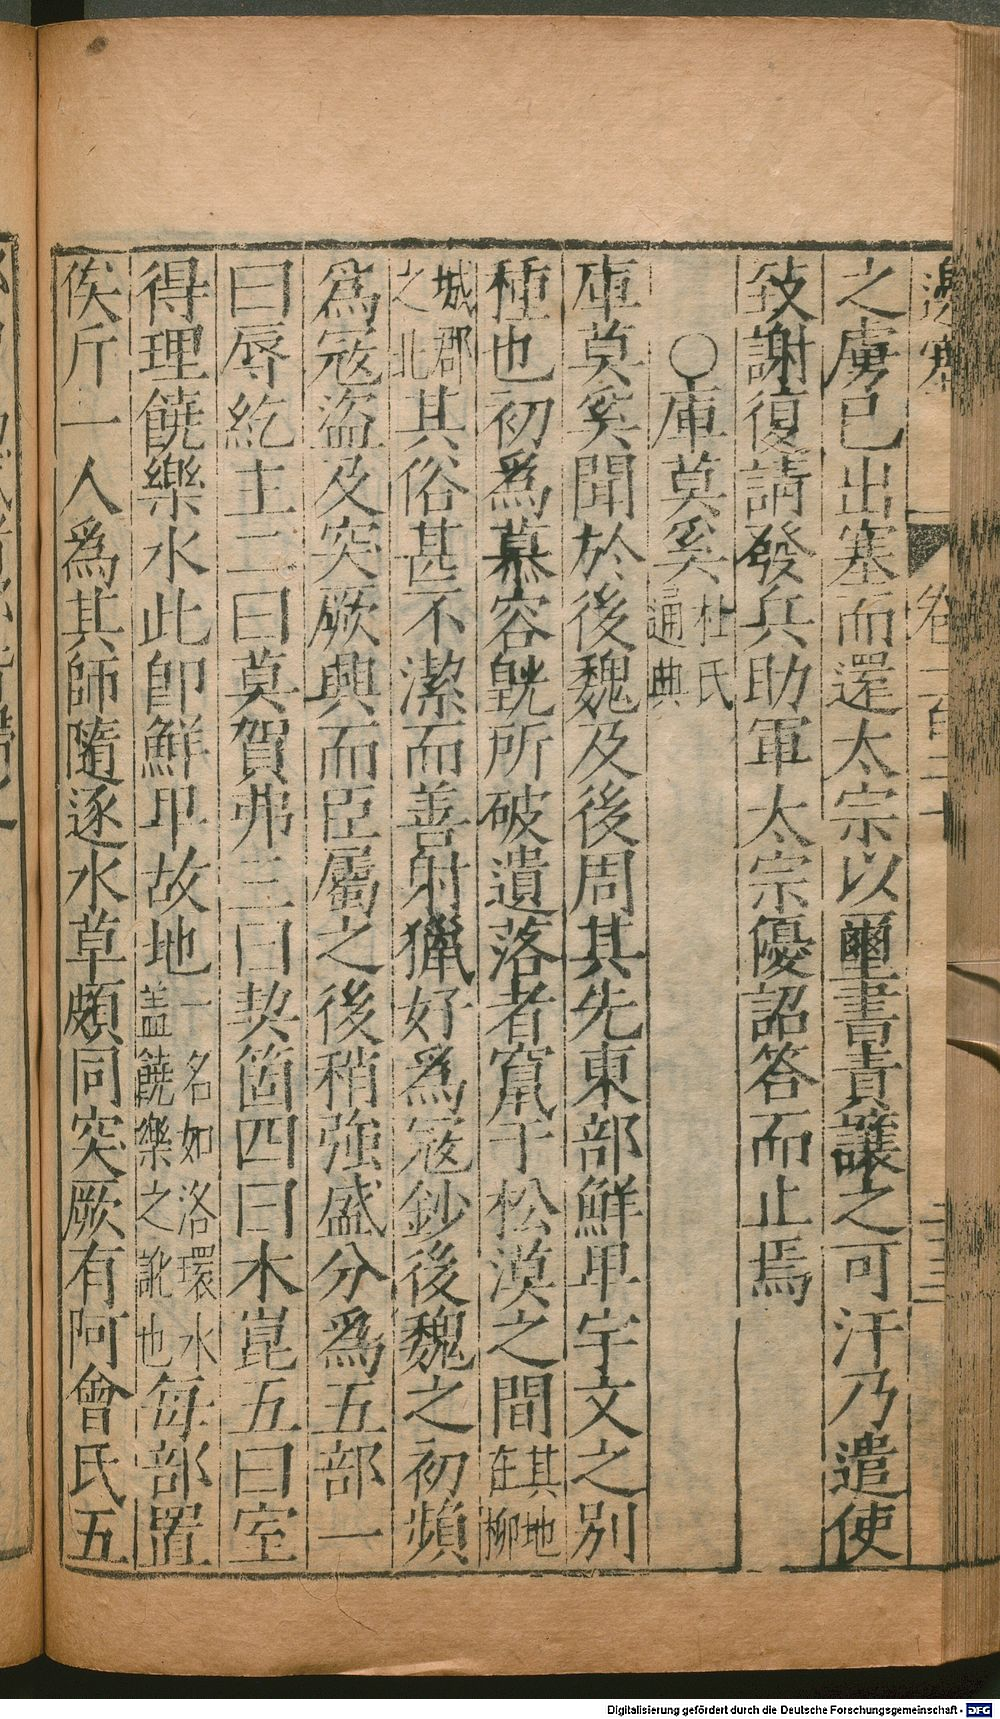 邊塞 卷一百二十 三十三
之虜已出塞而還太宗以璽書責讓之可汗乃遣使
致謝復請發兵助軍太宗優詔答而止焉
○庫莫奚杜氏通典
庫莫奚聞於後魏及後周其先東部鮮卑宇文之別
種也初爲慕容皝所破遺落者竄于松漠之間其地在柳
城郡之北其俗甚不潔而善射獵好爲寇鈔後魏之初頻
爲寇盜及突厥興而臣屬之後稍強盛分爲五部一
曰辱紇主二曰莫賀弗三曰契箇四曰木崑五曰室
得理饒樂水北卽鮮卑故地一名如洛環水盖饒樂之訛也每部置
俟斤一人爲其師隨逐水草頗同突厥有阿會氏五
Digitalisierung gefördert durch die Deutsche Forschungsgemeinschaft - DFG